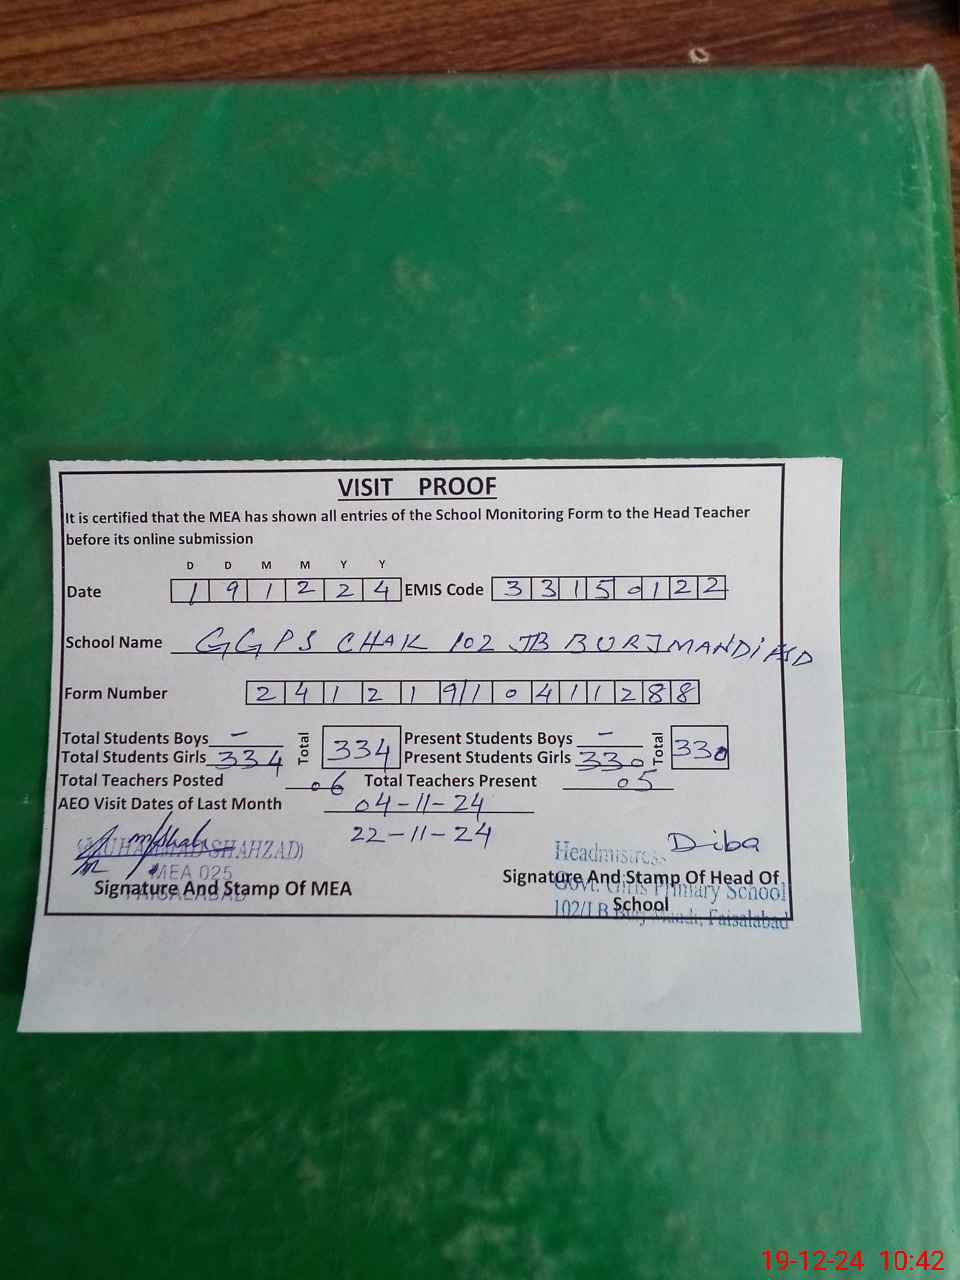 VISIT PROOF
It is certified that the MEA has shown all entries of the School Monitoring Form to the Head Teacher
before its online submission
D D M M Y Y
Date 1 9 1 2 2 4 EMIS Code 3 3 1 5 0 1 2 2
School Name GGPS CHAK 102 JB BURJ MANDI FSD
Form Number 2 4 1 2 1 9 1 0 4 1 1 2 8 8
Total Students Boys - Total 334 Present Students Boys - Total 330
Total Students Girls 334 Present Students Girls 330
Total Teachers Posted 06 Total Teachers Present 05
AEO Visit Dates of Last Month 04-11-24
22-11-24
(MUHAMMAD SHAHZAD)
MEA 025
FAISALABAD
Signature And Stamp Of MEA
Diba
Headmistress
Govt. Girls Primary School
102/J.B Burj Mandi, Faisalabad
Signature And Stamp Of Head Of
School
19-12-24 10:42